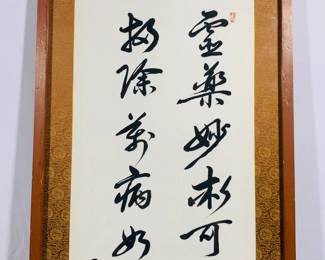 靈藥妙術可
掃除萬病如